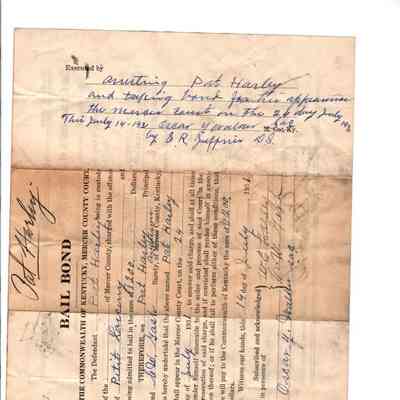 Executed by
arresting Pat Harley
and taking bond for his appearance
the mercer court on The 26 day July
This July 14-192
by E R D.S.
Pat Harley.
BAIL BOND
THE COMMONWEALTH OF KENTUCKY, MERCER COUNTY COURT.
The Defendant Pat Harley being in custody
of Mercer County, charged with the offense
of Petit Larceny and
being admitted to bail in the sum of $ 200 Dollars,
THEREFORE, we Pat Harley Principal,
and Surety, of Mercer County, Kentucky,
hereby undertake that the above named Pat Harley
shall appear in the Mercer County Court, on the 26
day of July 192 to answer said charge, and shall at all times
render himself amenable to the orders and process of said Court in the
prosecution of said charge, and if convicted shall render himself in execu-
tion thereof; or if he shall fail to perform either of these conditions, that
we will pay to the Commonwealth of Kentucky the sum of $ 200.00
Dollars.
Witness our hands, this 14 day of July 192
Subscribed and acknowledged
in presence of